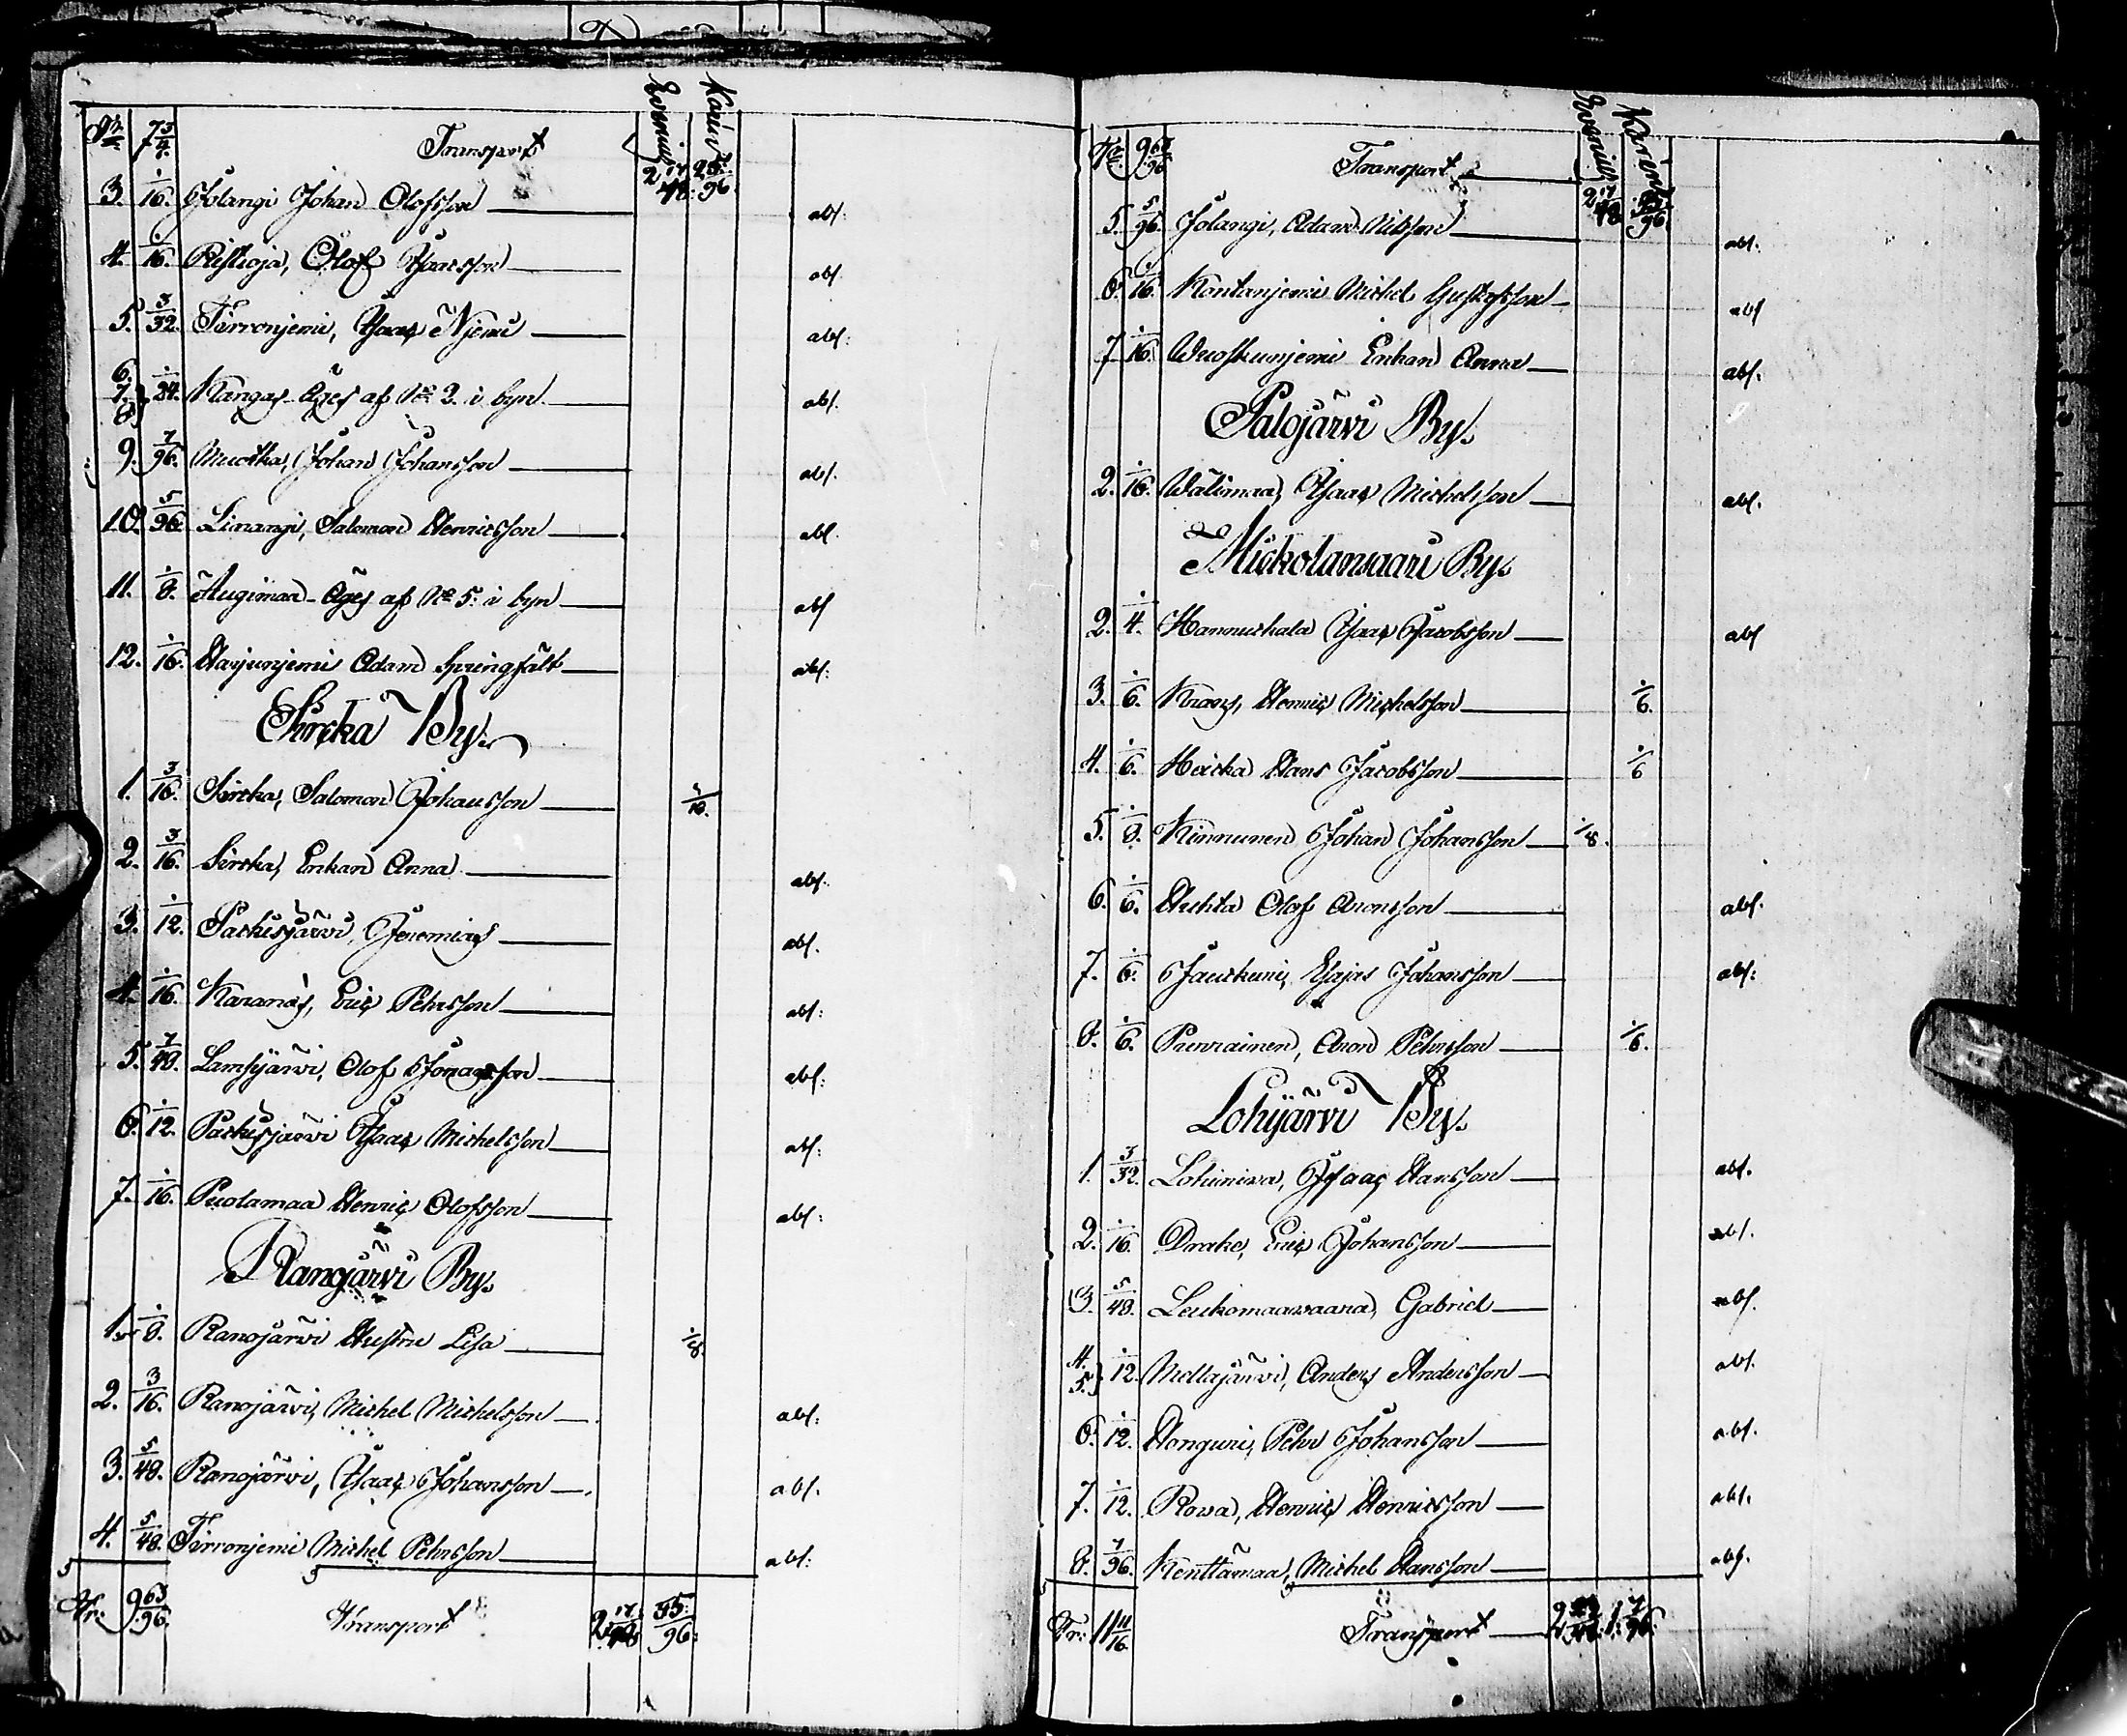 Tr. 7 3/4. Transport Evenius 2 17/48. Karin 23/96
3. 1/16. Jolangi Johan Olofsson abs:
4. 1/16. Ristioja, Olof Isaacsson abs.
5. 3/32. Törrönjemi, Isaac Njemi abs:
6. 7. 8} 1/24. Kangas Äges af No 2. i byn abs.
9. 7/96. Muotka, Johan Johansson abs.
10. 5/96. Linangi, Salomon Henricsson abs.
11. 1/8. Äugimaa Äges af No 5. i byn abs
12. 1/16. Harjunjemi Adam Springfält abs:
Sircka By.
1. 3/16. Sircka, Salomon Johansson 3/16.
2. 3/16. Sircka, Enkan Anna abs.
3. 1/12. Packisjärvi, Jeremias abs.
4. 1/16. Karanes, Eric Pehrsson abs:
5. 7/48. Lamsijärvi, Olof Jonasson abs:
6. 1/12. Packisjärvi Isaac Michelsson abs:
7. 1/16. Puolamaa Henric Olofsson abs:
Ranojärvi By.
1. 1/8. Ranojärvi Hustru Lisa 1/8.
2. 3/16. Ranojärvi, Michel Michelsson abs:
3. 5/48. Ranojärvi, Isaac Johansson abs.
4. 5/48. Törrönjemi Michel Pehrsson abs:
Tr: 9 63/96. Transport 2 17/48 55/96:
Tr. 9 63/96 Transport Evenius 2 17/48 Karin 55/96
5. 5/96. Jolangi, Adam Nilsson abs.
6. 1/16. Kontanjemi Michel Gustafsson abs
7. 1/16. Wuoskunjemi Enkan Anna abs.
Palojärvi By.
2. 1/16. Wälimaa, Isaac Michelsson abs.
Mickolansaari By.
2. 1/4. Hannukala Isaac Jacobsson abs
3. 1/6. Krans, Henric Michelsson 1/6.
4. 1/6. Heicka Hans Jacobsson 1/6
5. 1/8. Kinnunen Johan Johansson 1/8.
6. 1/6. Huhta Olof Aronsson abs.
7. 1/6. Jauckuri, Esajas Johansson abs:
8. 1/6. Puerainen, Aron Pehrsson 1/6.
Lohijärvi By.
1. 3/32. Lohiniva, Isaac Hansson abs.
2. 1/16. Drake, Eric Johansson abs.
3. 5/48. Leukomaawaara, Gabriel abs.
4. 5.} 1/12. Mellajärvi, Anders Andersson abs.
6. 1/12. Honguri, Pehr Johansson abs.
7. 1/12. Rowa, Henric Henricsson abs.
8. 7/96. Kenttämaa, Michel Hansson abs.
Tr: 11 11/16. Transport 1. 7/96.